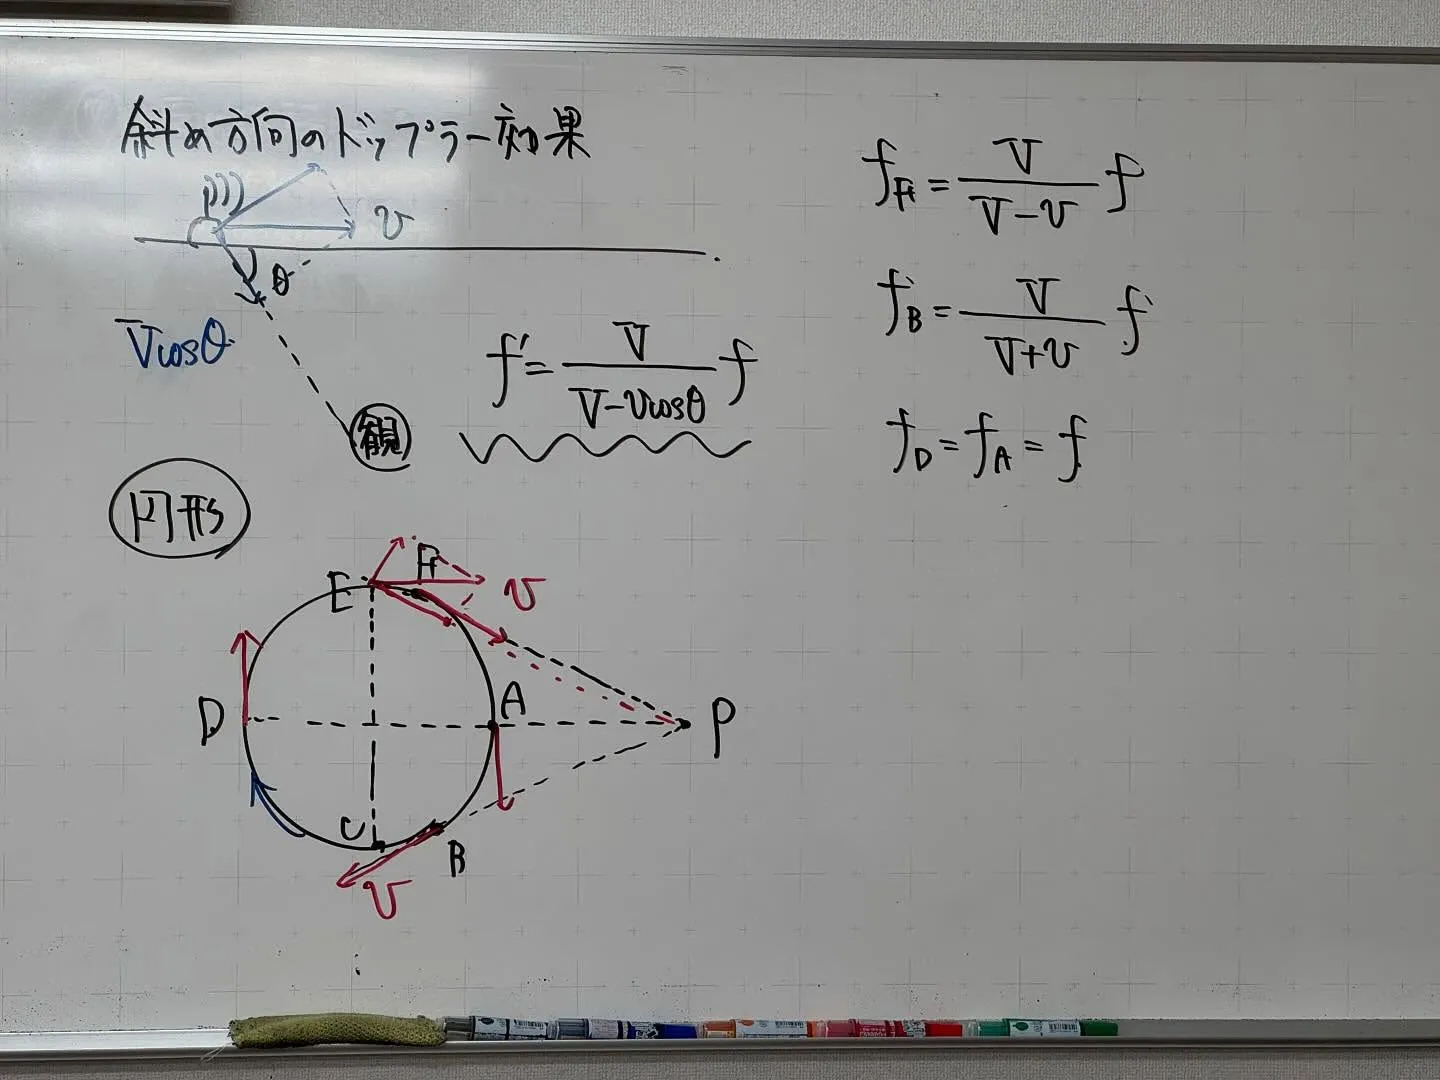 斜め方向のドップラー効果
v
θ
Vcosθ
f' = V / (V-vcosθ) f
観
円形
E
F
v
D
A
P
C
B
v
f_F = V / (V-v) f
f_B = V / (V+v) f
f_D = f_A = f